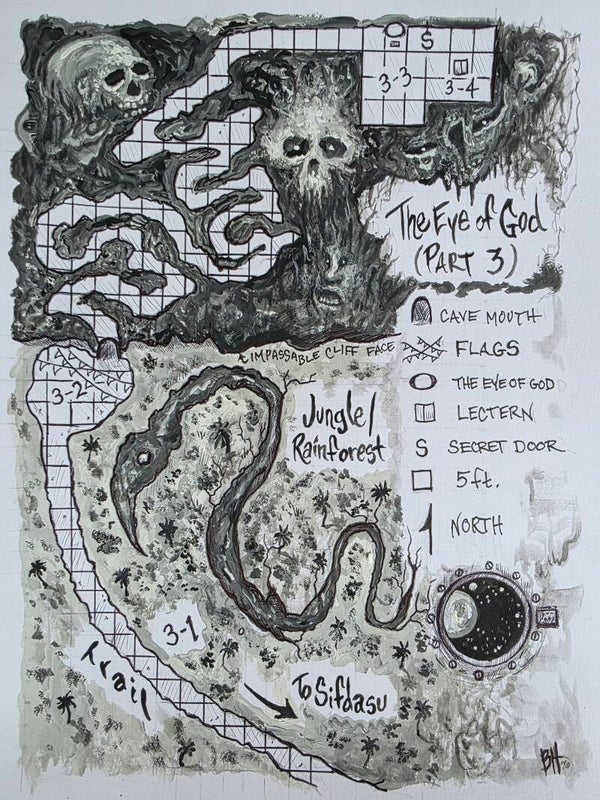 S
3-3
3-4
The Eye of God
(PART 3)
CAVE MOUTH
IMPASSABLE CLIFF FACE
FLAGS
THE EYE OF GOD
3-2
LECTERN
Jungle/
Rainforest
S SECRET DOOR
5ft.
NORTH
3-1
Trail
To Sifdasu
BH